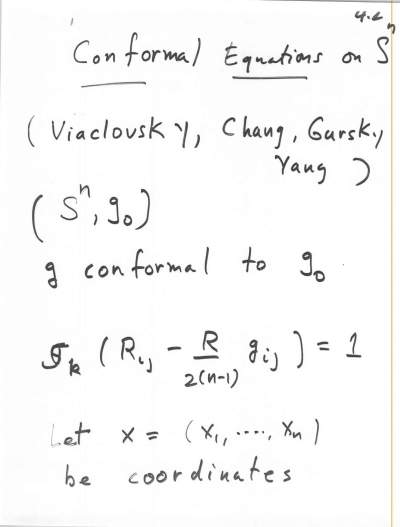 4.2
Conformal Equations on Sⁿ
(Viaclovsky, Chang, Gursky,
Yang)
(Sⁿ, g₀)
g conformal to g₀
σₖ (Rᵢⱼ - R/2(n-1) gᵢⱼ) = 1
Let x = (x₁, ...., xₙ)
be coordinates